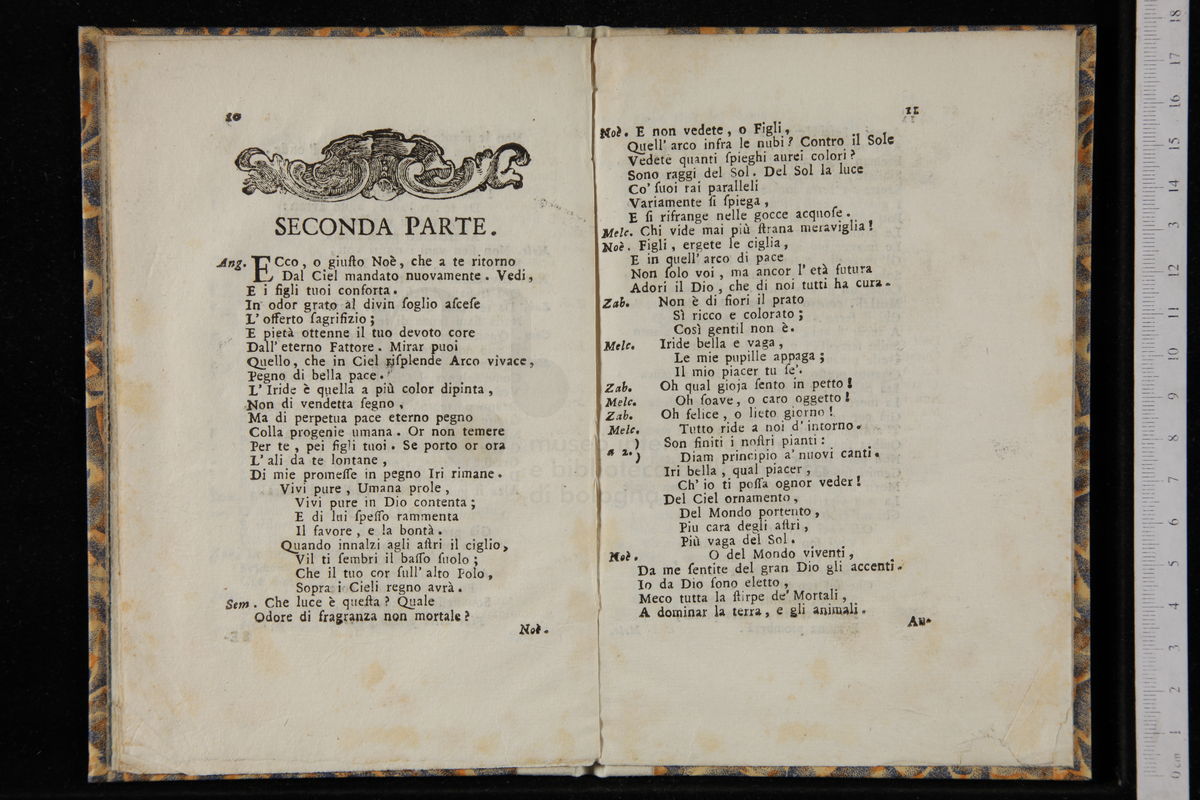 10
SECONDA PARTE.
Ang. ECco, o giuſto Noè, che a te ritorno
Dal Ciel mandato nuovamente. Vedi,
E i figli tuoi conforta.
In odor grato al divin ſoglio aſceſe
L' offerto ſagrifizio;
E pietà ottenne il tuo devoto core
Dall' eterno Fattore. Mirar puoi
Quello, che in Ciel riſplende Arco vivace,
Pegno di bella pace.
L' Iride è quella a più color dipinta,
Non di vendetta ſegno,
Ma di perpetua pace eterno pegno
Colla progenie umana. Or non temere
Per te, pei figli tuoi. Se porto or ora
L' ali da te lontane,
Di mie promeſſe in pegno Iri rimane.
Vivi pure, Umana prole,
Vivi pure in Dio contenta;
E di lui ſpeſſo rammenta
Il favore, e la bontà.
Quando innalzi agli aſtri il ciglio,
Vil ti ſembri il baſſo ſuolo;
Che il tuo cor ſull' alto Polo,
Sopra i Cieli regno avrà.
Sem. Che luce è queſta? Quale
Odore di fragranza non mortale?
Noè.
11
Noè. E non vedete, o Figli,
Quell' arco infra le nubi? Contro il Sole
Vedete quanti ſpieghi aurei colori?
Sono raggi del Sol. Del Sol la luce
Co' ſuoi rai paralleli
Variamente ſi ſpiega,
E ſi rifrange nelle gocce acquoſe.
Melc. Chi vide mai più ſtrana meraviglia!
Noè. Figli, ergete le ciglia,
E in quell' arco di pace
Non ſolo voi, ma ancor l' età futura
Adori il Dio, che di noi tutti ha cura.
Zab. Non è di fiori il prato
Sì ricco e colorato;
Così gentil non è.
Melc. Iride bella e vaga,
Le mie pupille appaga;
Il mio piacer tu ſe'.
Zab. Oh qual gioja ſento in petto!
Melc. Oh ſoave, o caro oggetto!
Zab. Oh felice, o lieto giorno!
Melc. Tutto ride a noi d' intorno.
) Son finiti i noſtri pianti:
a 2. ) Diam principio a' nuovi canti.
Iri bella, qual piacer,
Ch' io ti poſſa ognor veder!
Del Ciel ornamento,
Del Mondo portento,
Piu cara degli aſtri,
Più vaga del Sol.
Noè. O del Mondo viventi,
Da me ſentite del gran Dio gli accenti.
Io da Dio ſono eletto,
Meco tutta la ſtirpe de' Mortali,
A dominar la terra, e gli animali.
An-